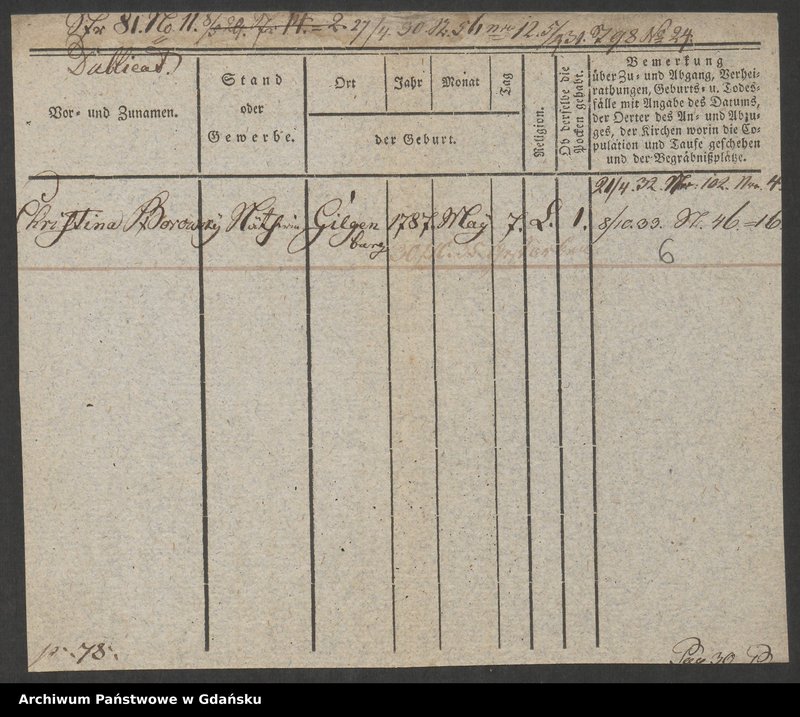 81. No 11. 27/4. 30 12. 5/9 31. 798 No 24.
Dublicat.
Vor- und Zunamen.
Stand
oder
Gewerbe.
Ort
Jahr
Monat
Tag
der Geburt.
Religion.
Ob derselbe die
Pocken gehabt.
Bemerkung
über Zu- und Abgang, Verhei-
rathungen, Geburts- u. Todes-
fälle mit Angabe des Datums,
der Oerter des An- und Abzu-
ges, der Kirchen worin die Co-
pulation und Taufe geschehen
und der Begräbnißplätze.
21/4. 32. 102. 4
Christina Borowsky Gilgen 1787. May 7. L. 1. 8/10. 33. 46. 16.
burg
6
78.
Pag 30
Archiwum Państwowe w Gdańsku